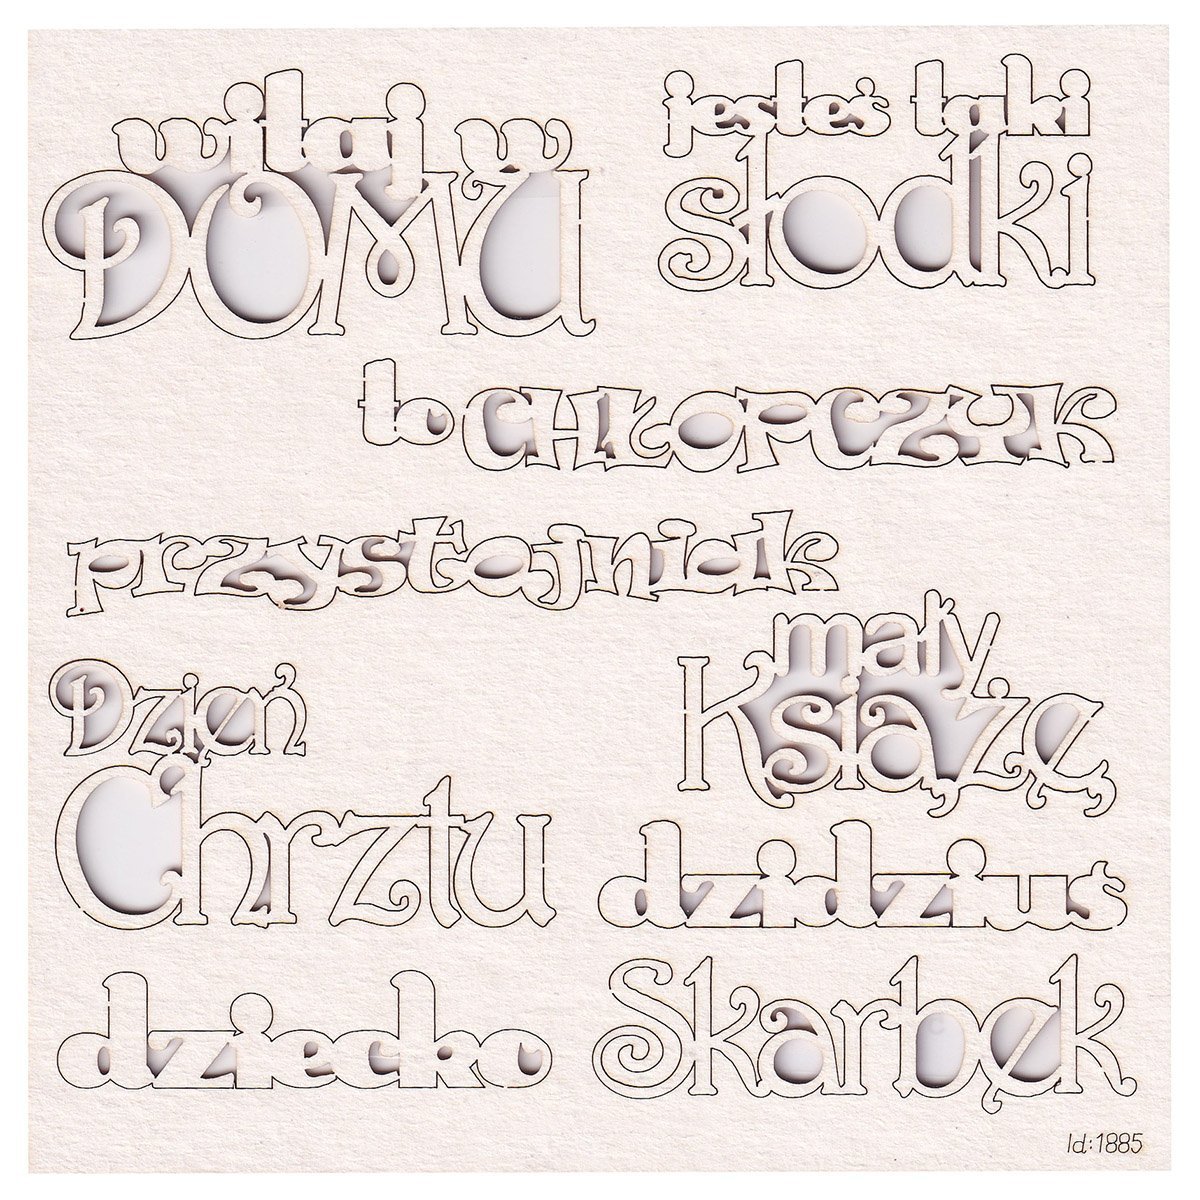 witaj w
DOMU
jesteś taki
słodki
to CHŁOPCZYK
przystojniak
mały
Książę
Dzień
Chrztu
dzidziuś
dziecko
Skarbek
Id:1885